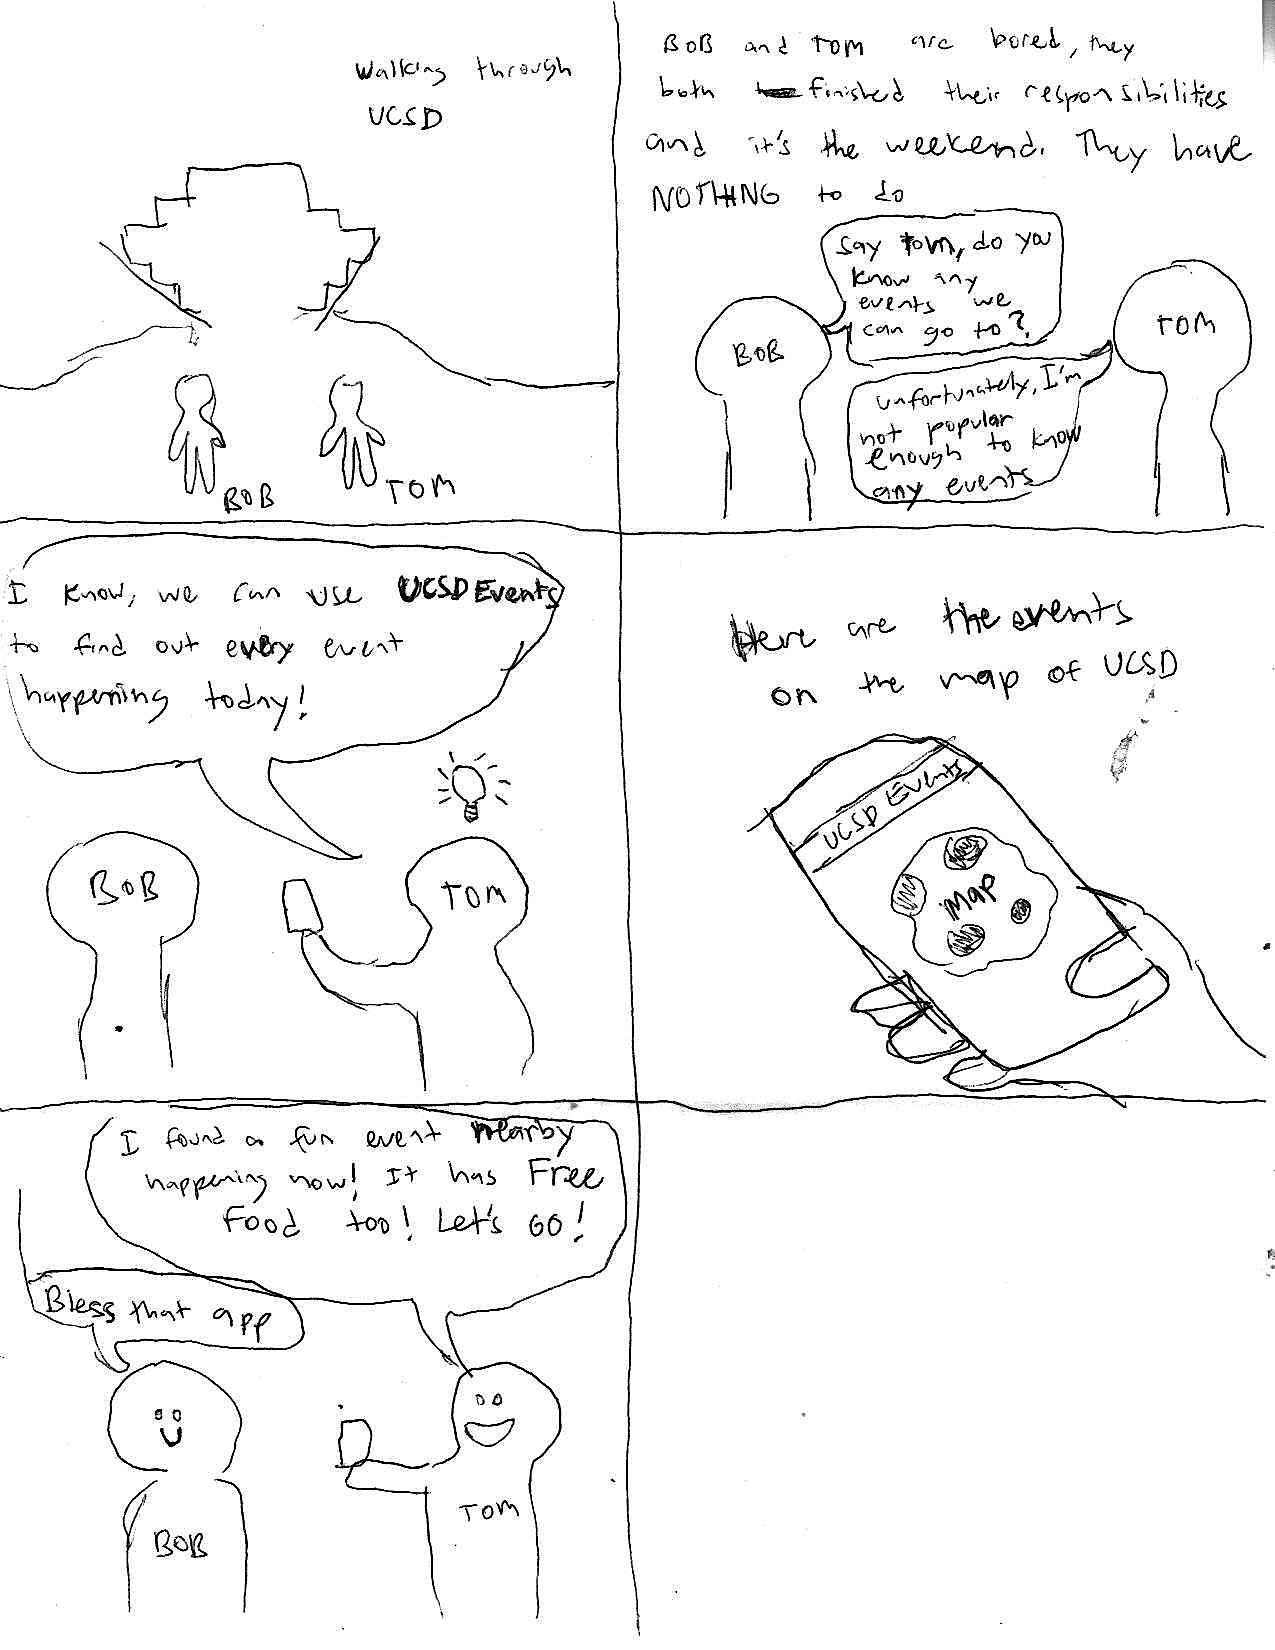 Walking through
UCSD
BOB
TOM
BOB and TOM are bored, they
both finished their responsibilities
and it's the weekend. They have
NOTHING to do
Say Tom, do you
know any
events we
can go to?
BOB
TOM
Unfortunately, I'm
not popular
enough to know
any events
I know, we can use UCSD Events
to find out every event
happening today!
BOB
TOM
Here are the events
on the map of UCSD
UCSD Events
Map
I found a fun event nearby
happening now! It has Free
Food too! Let's GO!
Bless that app
BOB
TOM